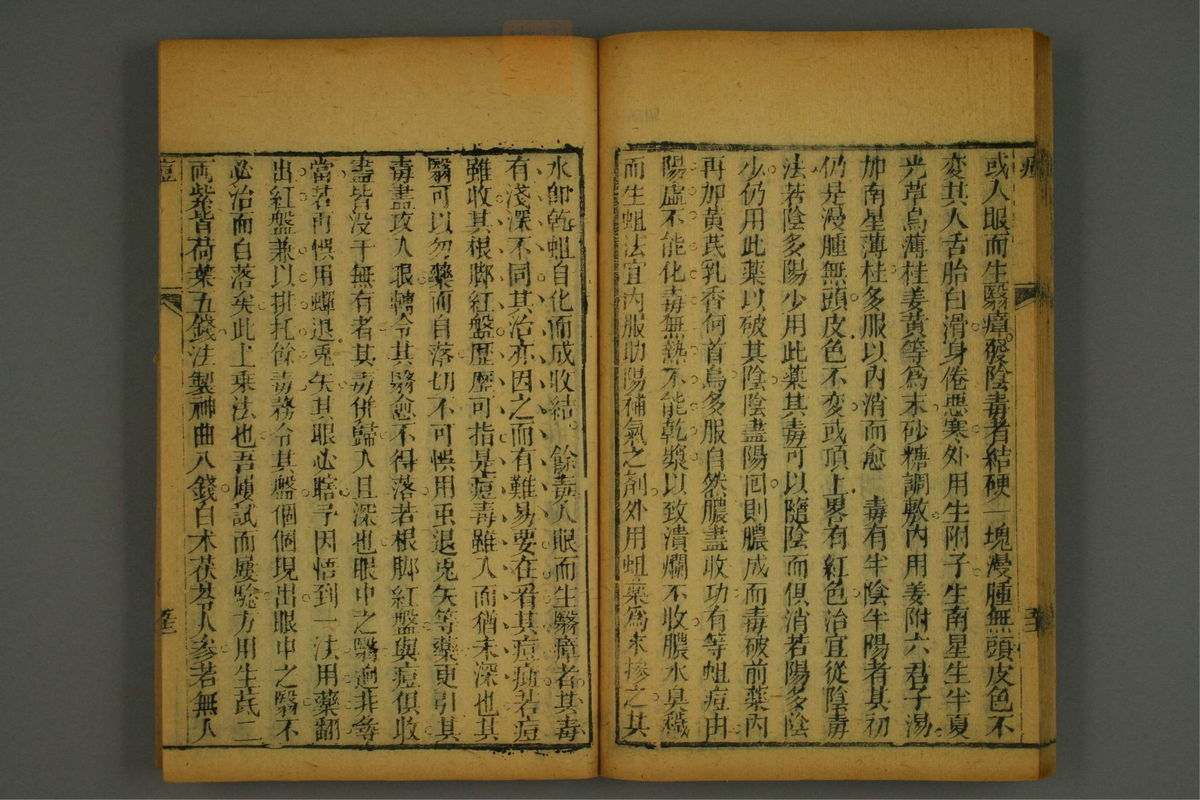 或入眼而生翳瘴發陰毒者結硬一塊漫腫無頭皮色不
変其人舌胎白滑身倦悪寒外用生附子生南星生半夏
光草烏薄桂姜黃等爲末砂糖調敷內用姜附六君子湯
加南星薄桂多服以內消而愈　毒有半陰半陽者其初
仍是漫腫無頭皮色不变或頂上畧有紅色治宜從陰毒
法若陰多陽少用此薬其毒可以隨陰而俱消若陽多陰
少仍用此薬以破其陰陰盡陽囘則膿成而毒破前薬內
再加黃芪乳香何首烏多服自然膿盡收功有等蛆痘由
陽虛不能化毒無熱不能乾漿以致潰爛不收膿水臭穢
而生蛆法宜內服助陽補氣之剤外用蛆藥爲末摻之其
水卽乾蛆自化而成收結　餘毒入眼而生翳瘴者其毒
有淺深不同其治亦因之而有難易要在看其痘痕若痘
雖收其根脚紅盤歷歷可指是痘毒雖入而猶未深也其
翳可以勿藥而自落切不可悞用虫退兎矢等藥更引其
毒盡攻入眼轉令其翳愈不得落若根脚紅盤與痘俱收
盡皆没干無有者其毒併歸入且深也眼中之翳迥非等
當若再悞用蟬退兎矢其眼必瞎予因悟到一法用藥翻
出紅盤兼以排托餘毒務令其盤個個現出眼中之翳不
必治而自落矣此上乗法也吾屢試而屢騐方用生芪二
両紫背荷葉五錢法製神曲八錢白术茯苓人参若無人
痘